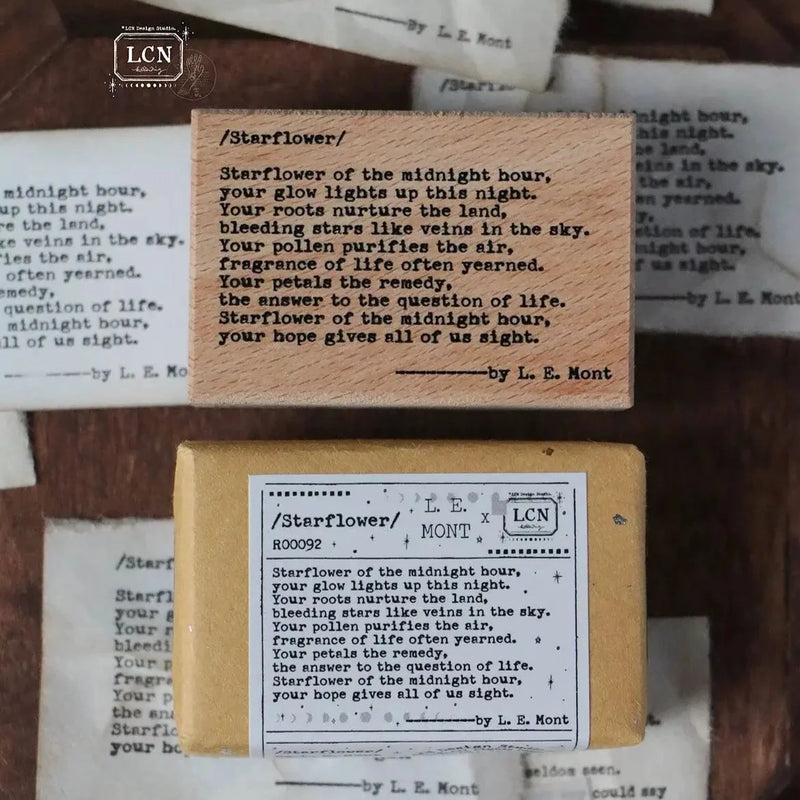 —by L. E. Mont
LCN Design Studio.
LCN
/Starflower/
/Starflower/
Starflower of the midnight hour,
your glow lights up this night.
Your roots nurture the land,
bleeding stars like veins in the sky.
Your pollen purifies the air,
fragrance of life often yearned.
Your petals the remedy,
the answer to the question of life.
Starflower of the midnight hour,
your hope gives all of us sight.
—by L. E. Mont
midnight hour,
up this night.
re the land,
ke veins in the sky.
fies the air,
often yearned.
emedy,
question of life.
midnight hour,
ll of us sight.
—by L. E. Mo
night hour,
his night.
he land,
eins in the sky.
the air,
en yearned.
y,
stion of life.
night hour,
f us sight.
—by L. E. Mont
/Starflower/
R00092
L. E.
MONT
x
LCN Design Studio.
LCN
Starflower of the midnight hour,
your glow lights up this night.
Your roots nurture the land,
bleeding stars like veins in the sky.
Your pollen purifies the air,
fragrance of life often yearned.
Your petals the remedy,
the answer to the question of life.
Starflower of the midnight hour,
your hope gives all of us sight.
—by L. E. Mont
/Starflower/
/Starf
Starfl
your g
Your r
bleedi
Your p
fragra
Your p
the ans
Starflo
your ho
—by L. E. Mont
seldom seen.
could say